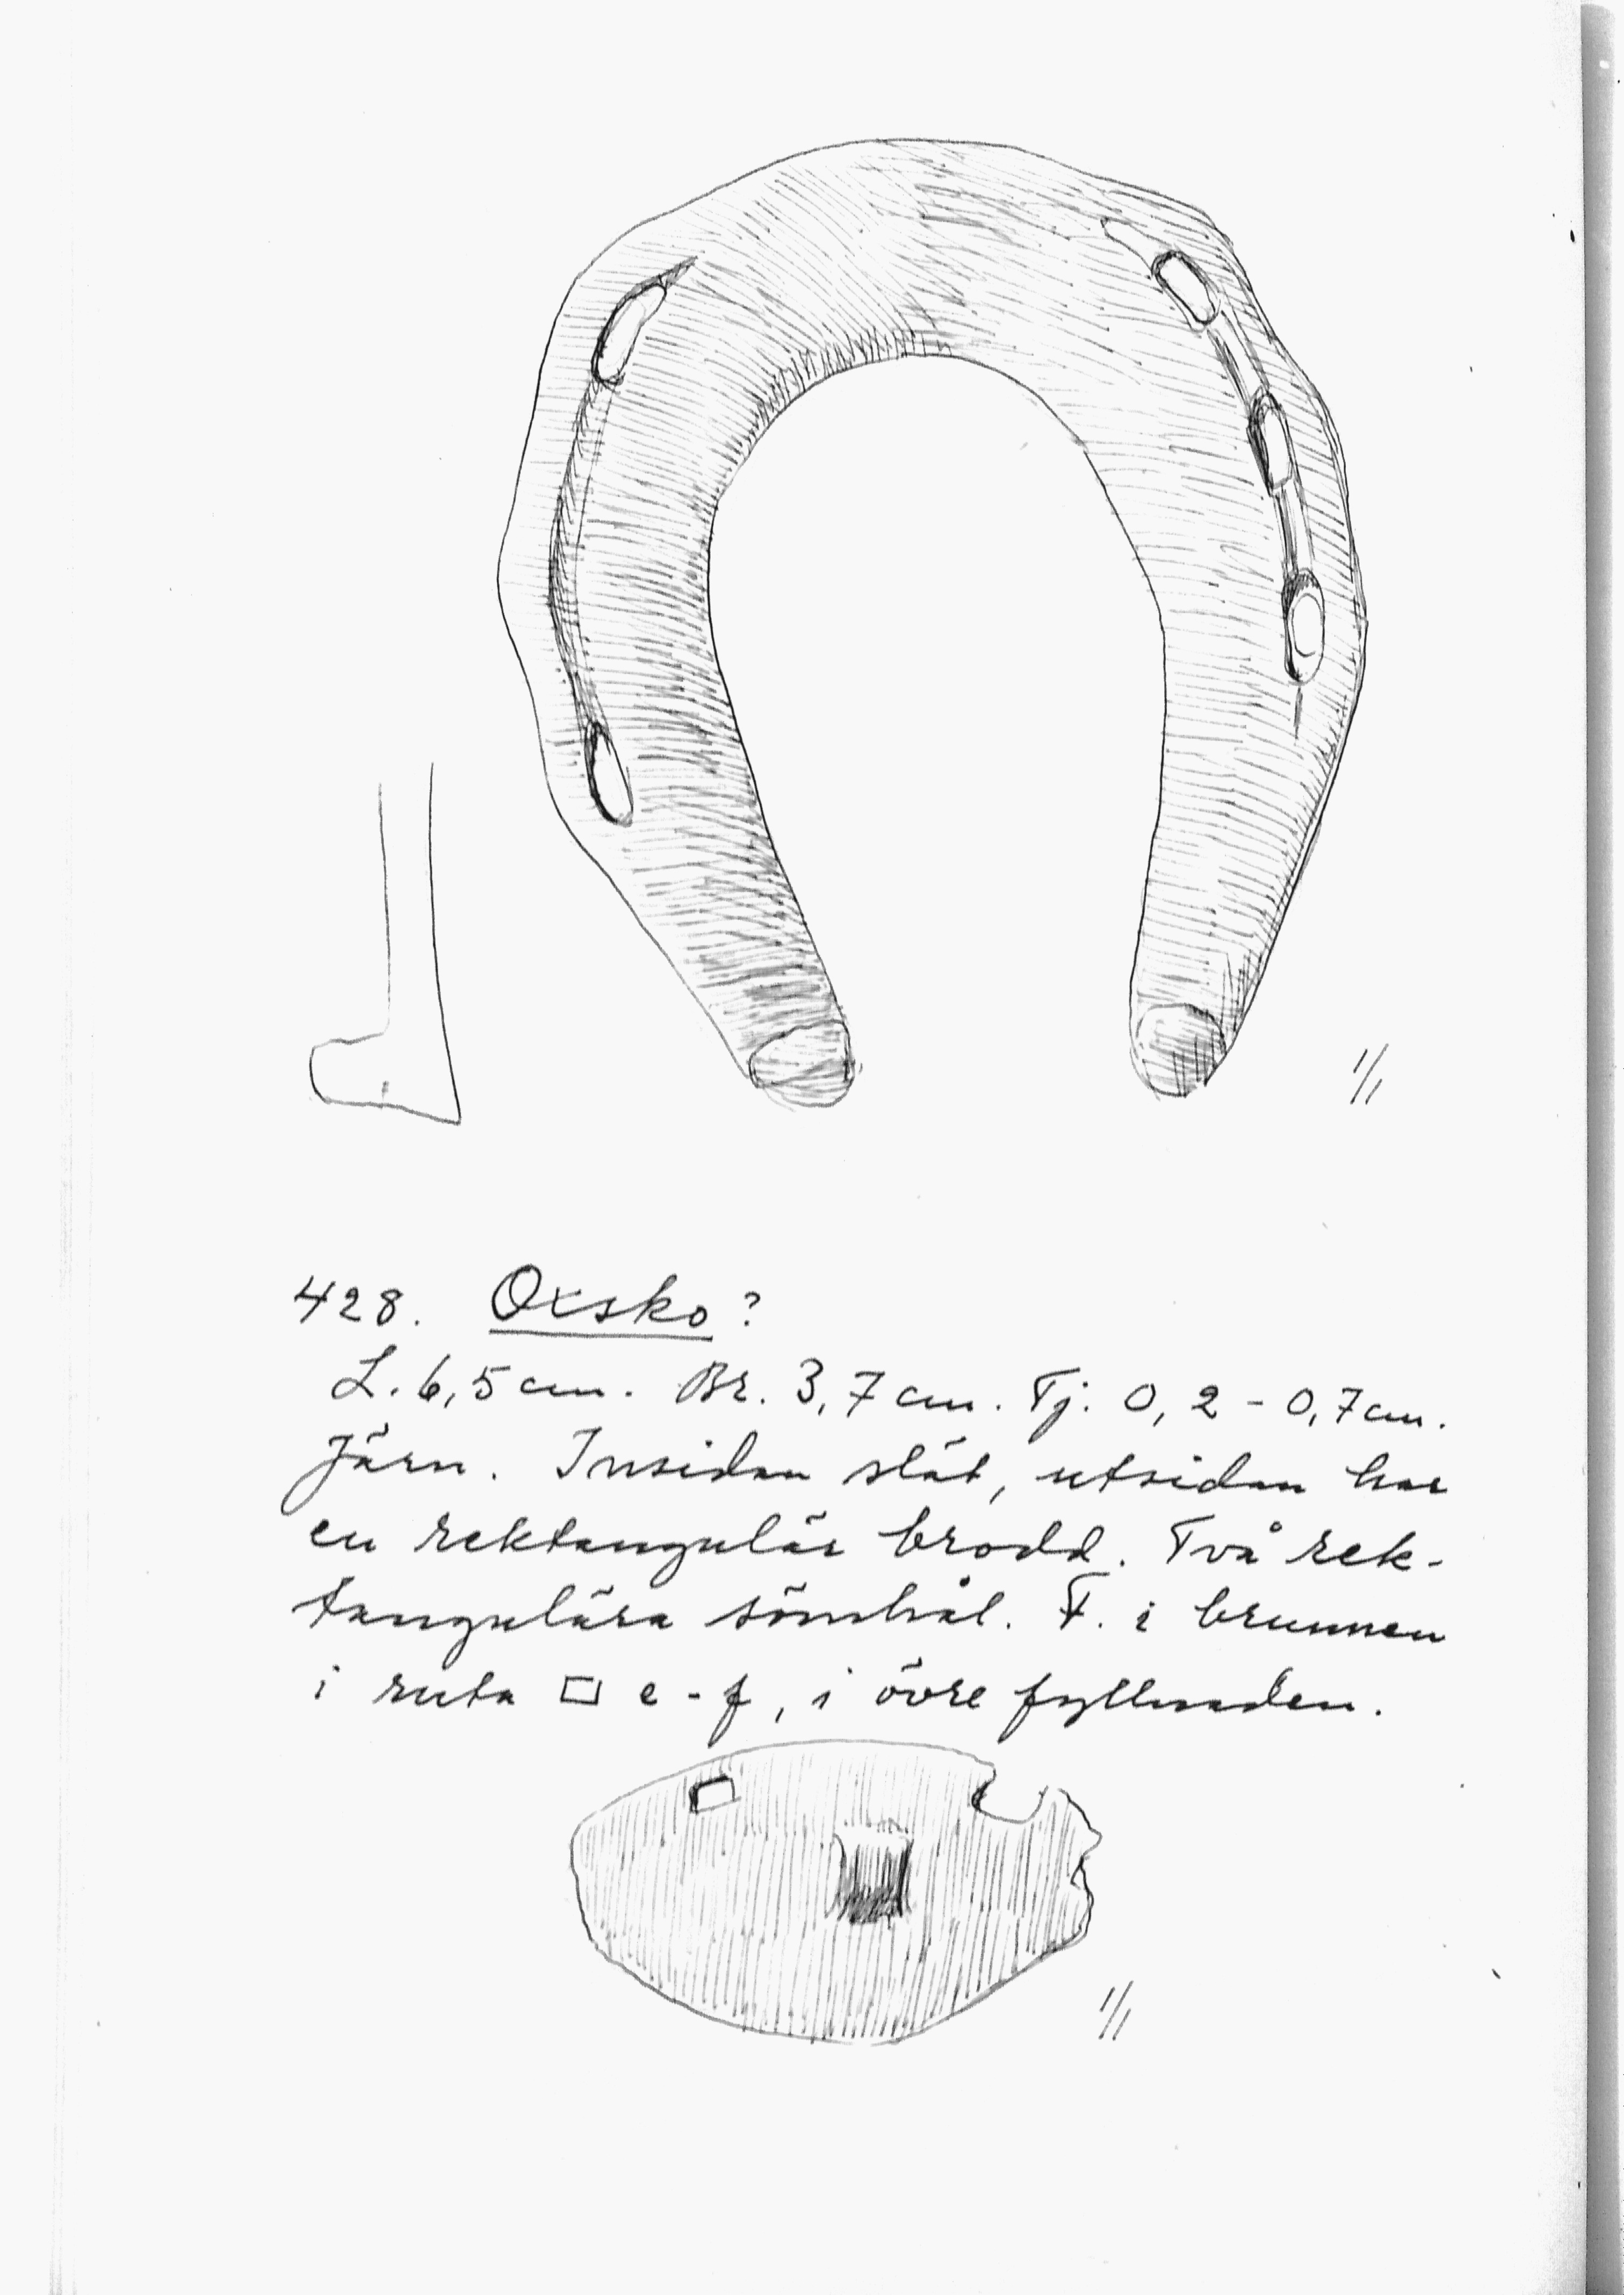 1/1
428. Oxsko?
L. 6,5 cm. Br. 3,7 cm. Tj. 0,2 - 0,7 cm.
Järn. Insidan slät, utsidan har
en rektangulär brodd. Två rek-
tangulära sömhål. F. i brunnen
i ruta □ e - f, i övre fyllnaden.
1/1